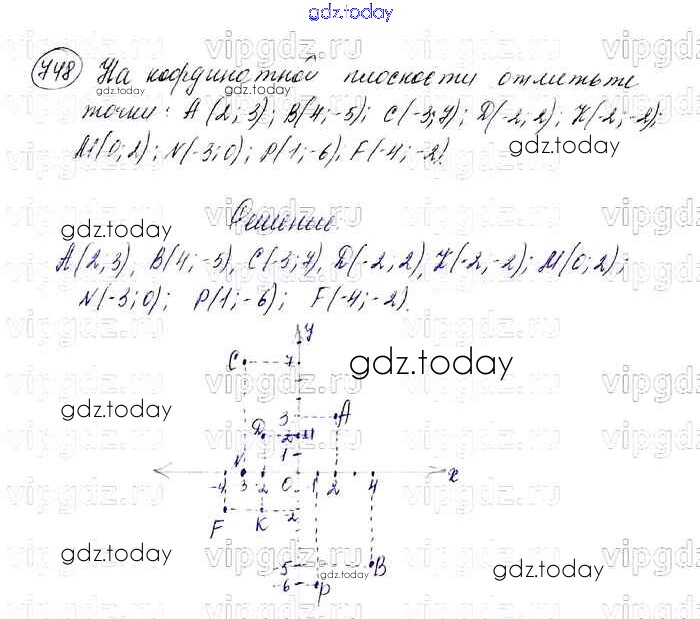 gdz.today
748 На координатной плоскости отметьте
точки: A(2; 3); B(4; -5); C(-3; 7); D(-2; 2); K(-2; -2);
M(0; 2); N(-3; 0); P(1; -6), F(-4; -2).
gdz.today
Решение:
gdz.today
A(2, 3), B(4; -5), C(-3; 7), D(-2, 2), K(-2, -2); M(0; 2);
N(-3; 0); P(1; -6); F(-4; -2).
y
C 7
gdz.today
gdz.today
3 A
D 2 M
1
N
-4 3 -2 0 1 2 4 x
F K -2
gdz.today
-5 B
gdz.today
gdz.today
-6 P
vipgdz.ru